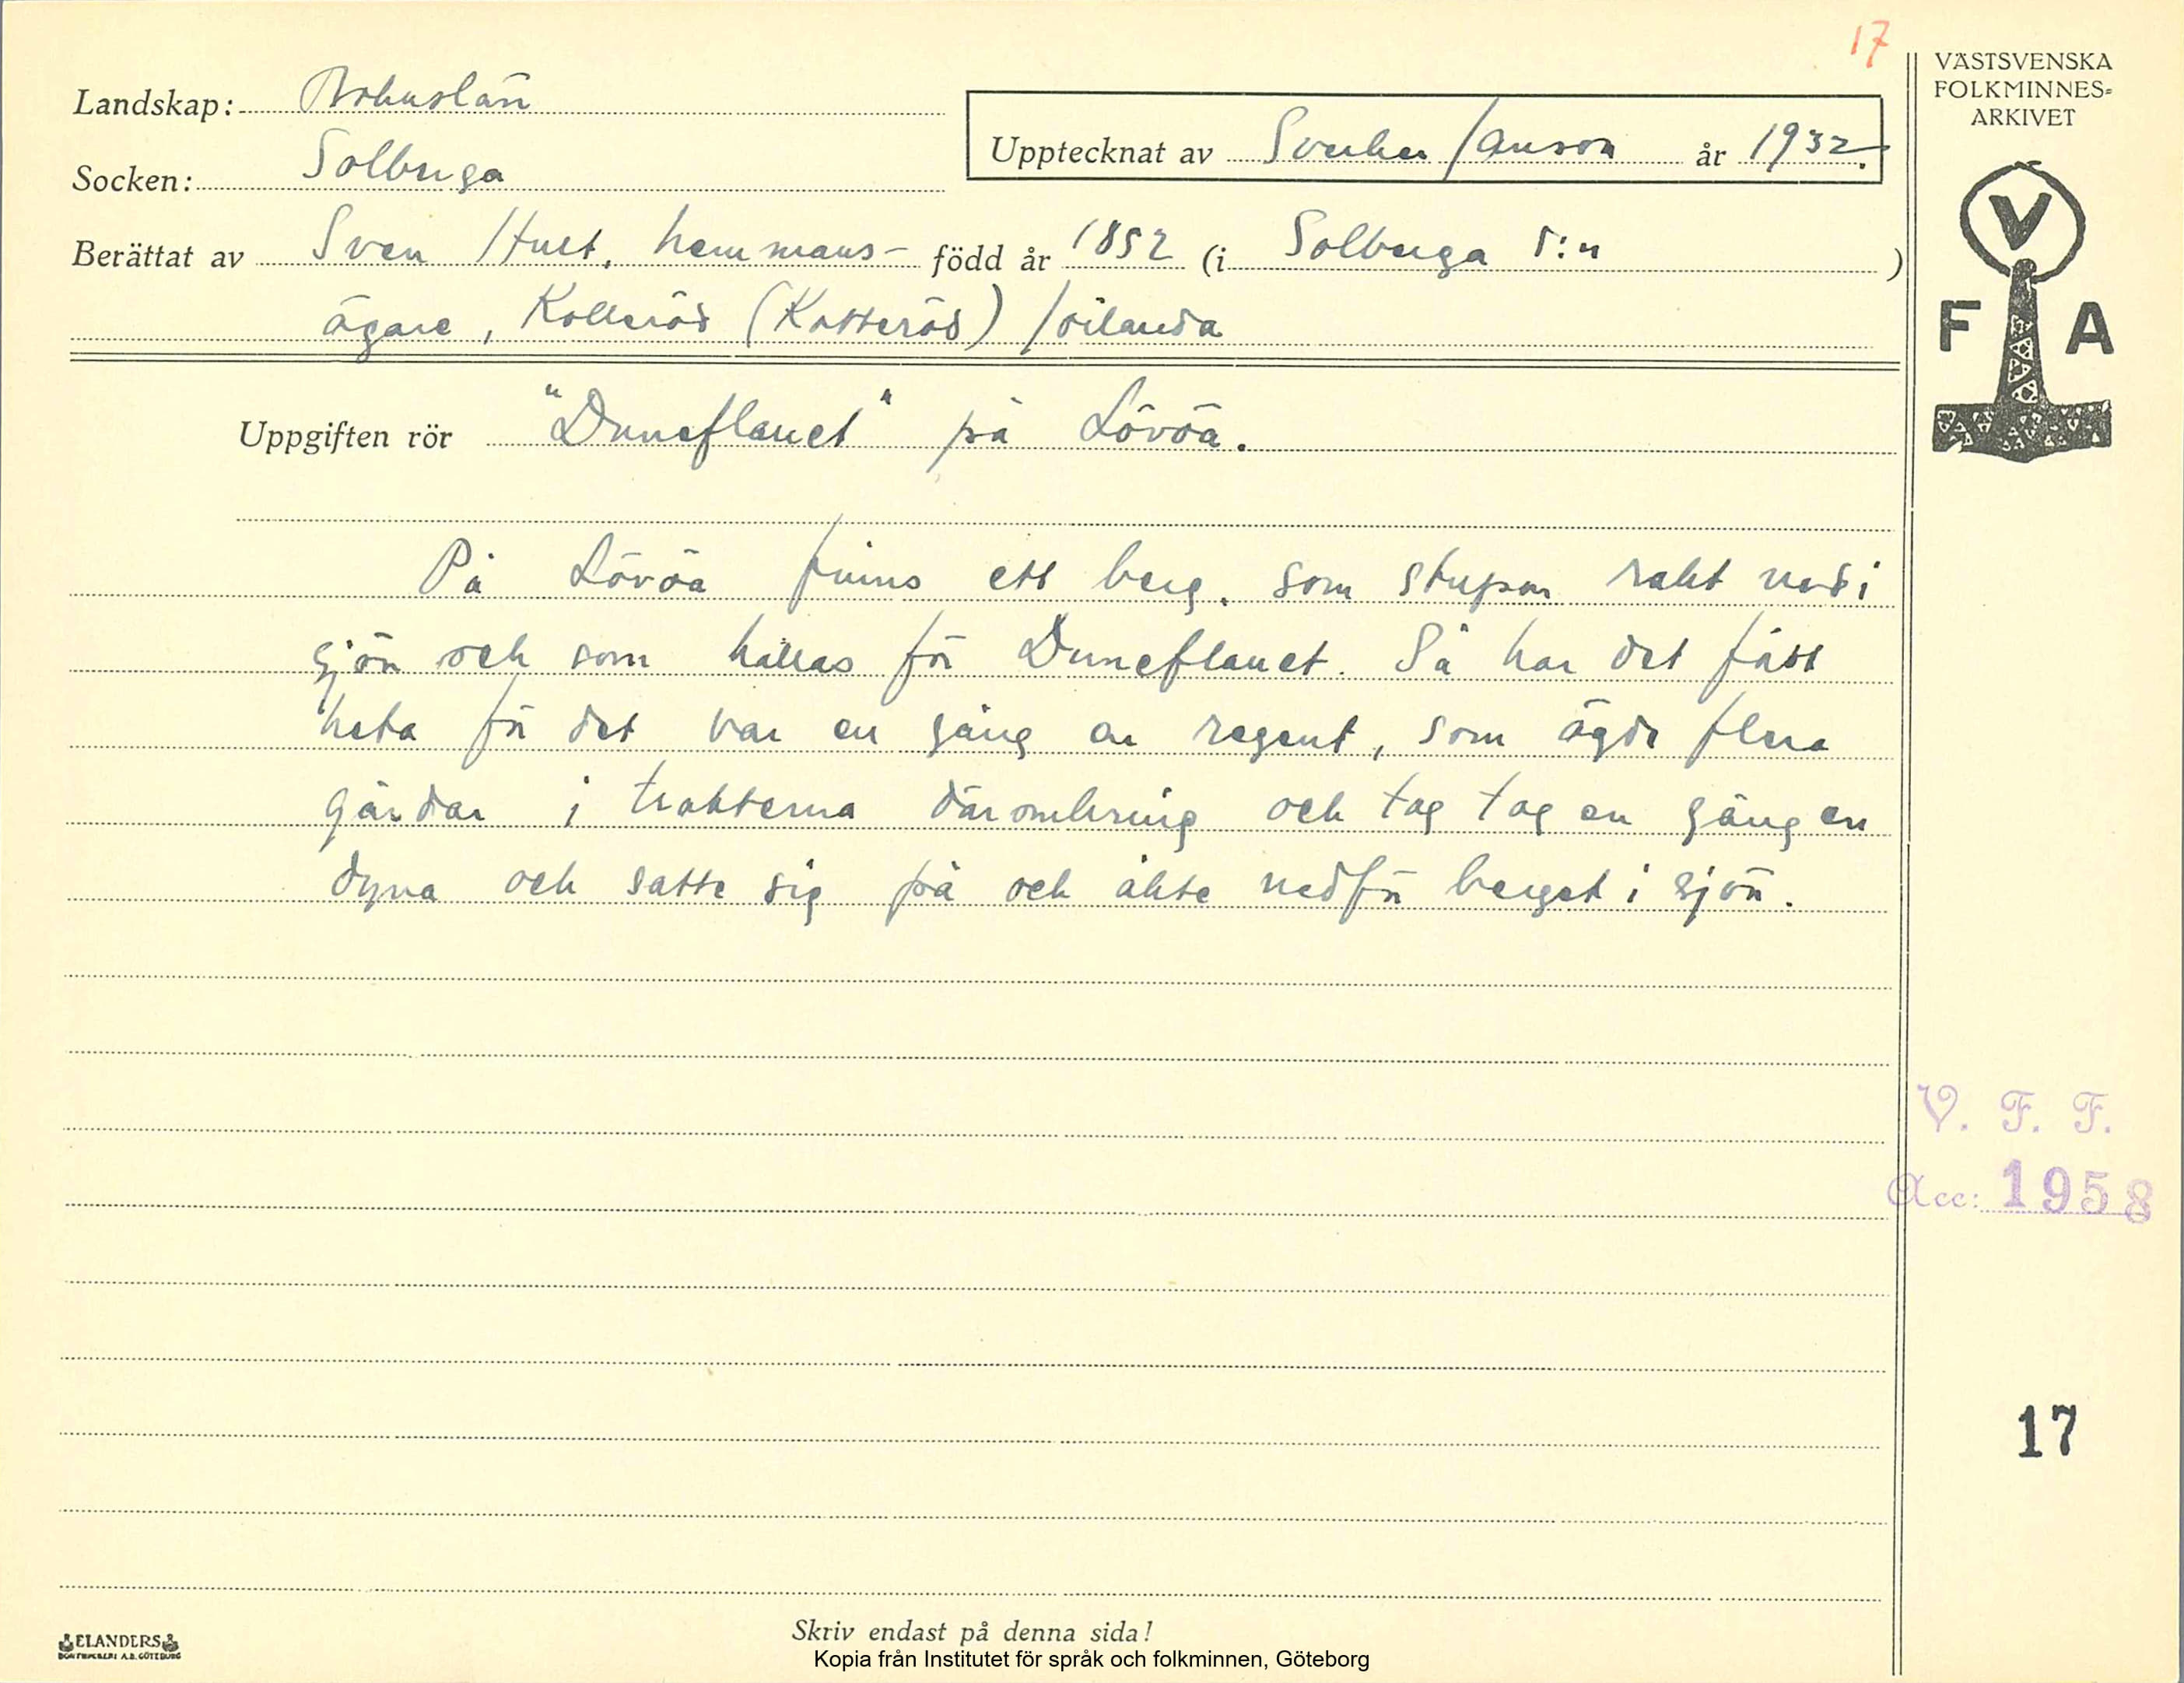 17
VÄSTSVENSKA
FOLKMINNES-
ARKIVET
Landskap: Bohuslän
Upptecknat av Sverker Janson år 1932.
Socken: Solberga
Berättat av Sven Hult, hemmans- född år 1852 (i Solberga s:n )
ägare, Kolleröd (Kotteröd) Jörlanda
V
F A
Uppgiften rör "Duneflauet" på Lövöa.
På Lövöa finns ett berg, som stupar rakt ned i
sjön och som kallas för Duneflauet. Så har det fått
heta för det var en gång en regent, som ägde flera
gårdar i trakterna däromkring och tog tog en gång en
dyna och satte sig på och åkte nedför berget i sjön.
V. F. F.
Acc: 1958
17
ELANDERS
BOKTRYCKERI A.B. GÖTEBORG
Skriv endast på denna sida!
Kopia från Institutet för språk och folkminnen, Göteborg